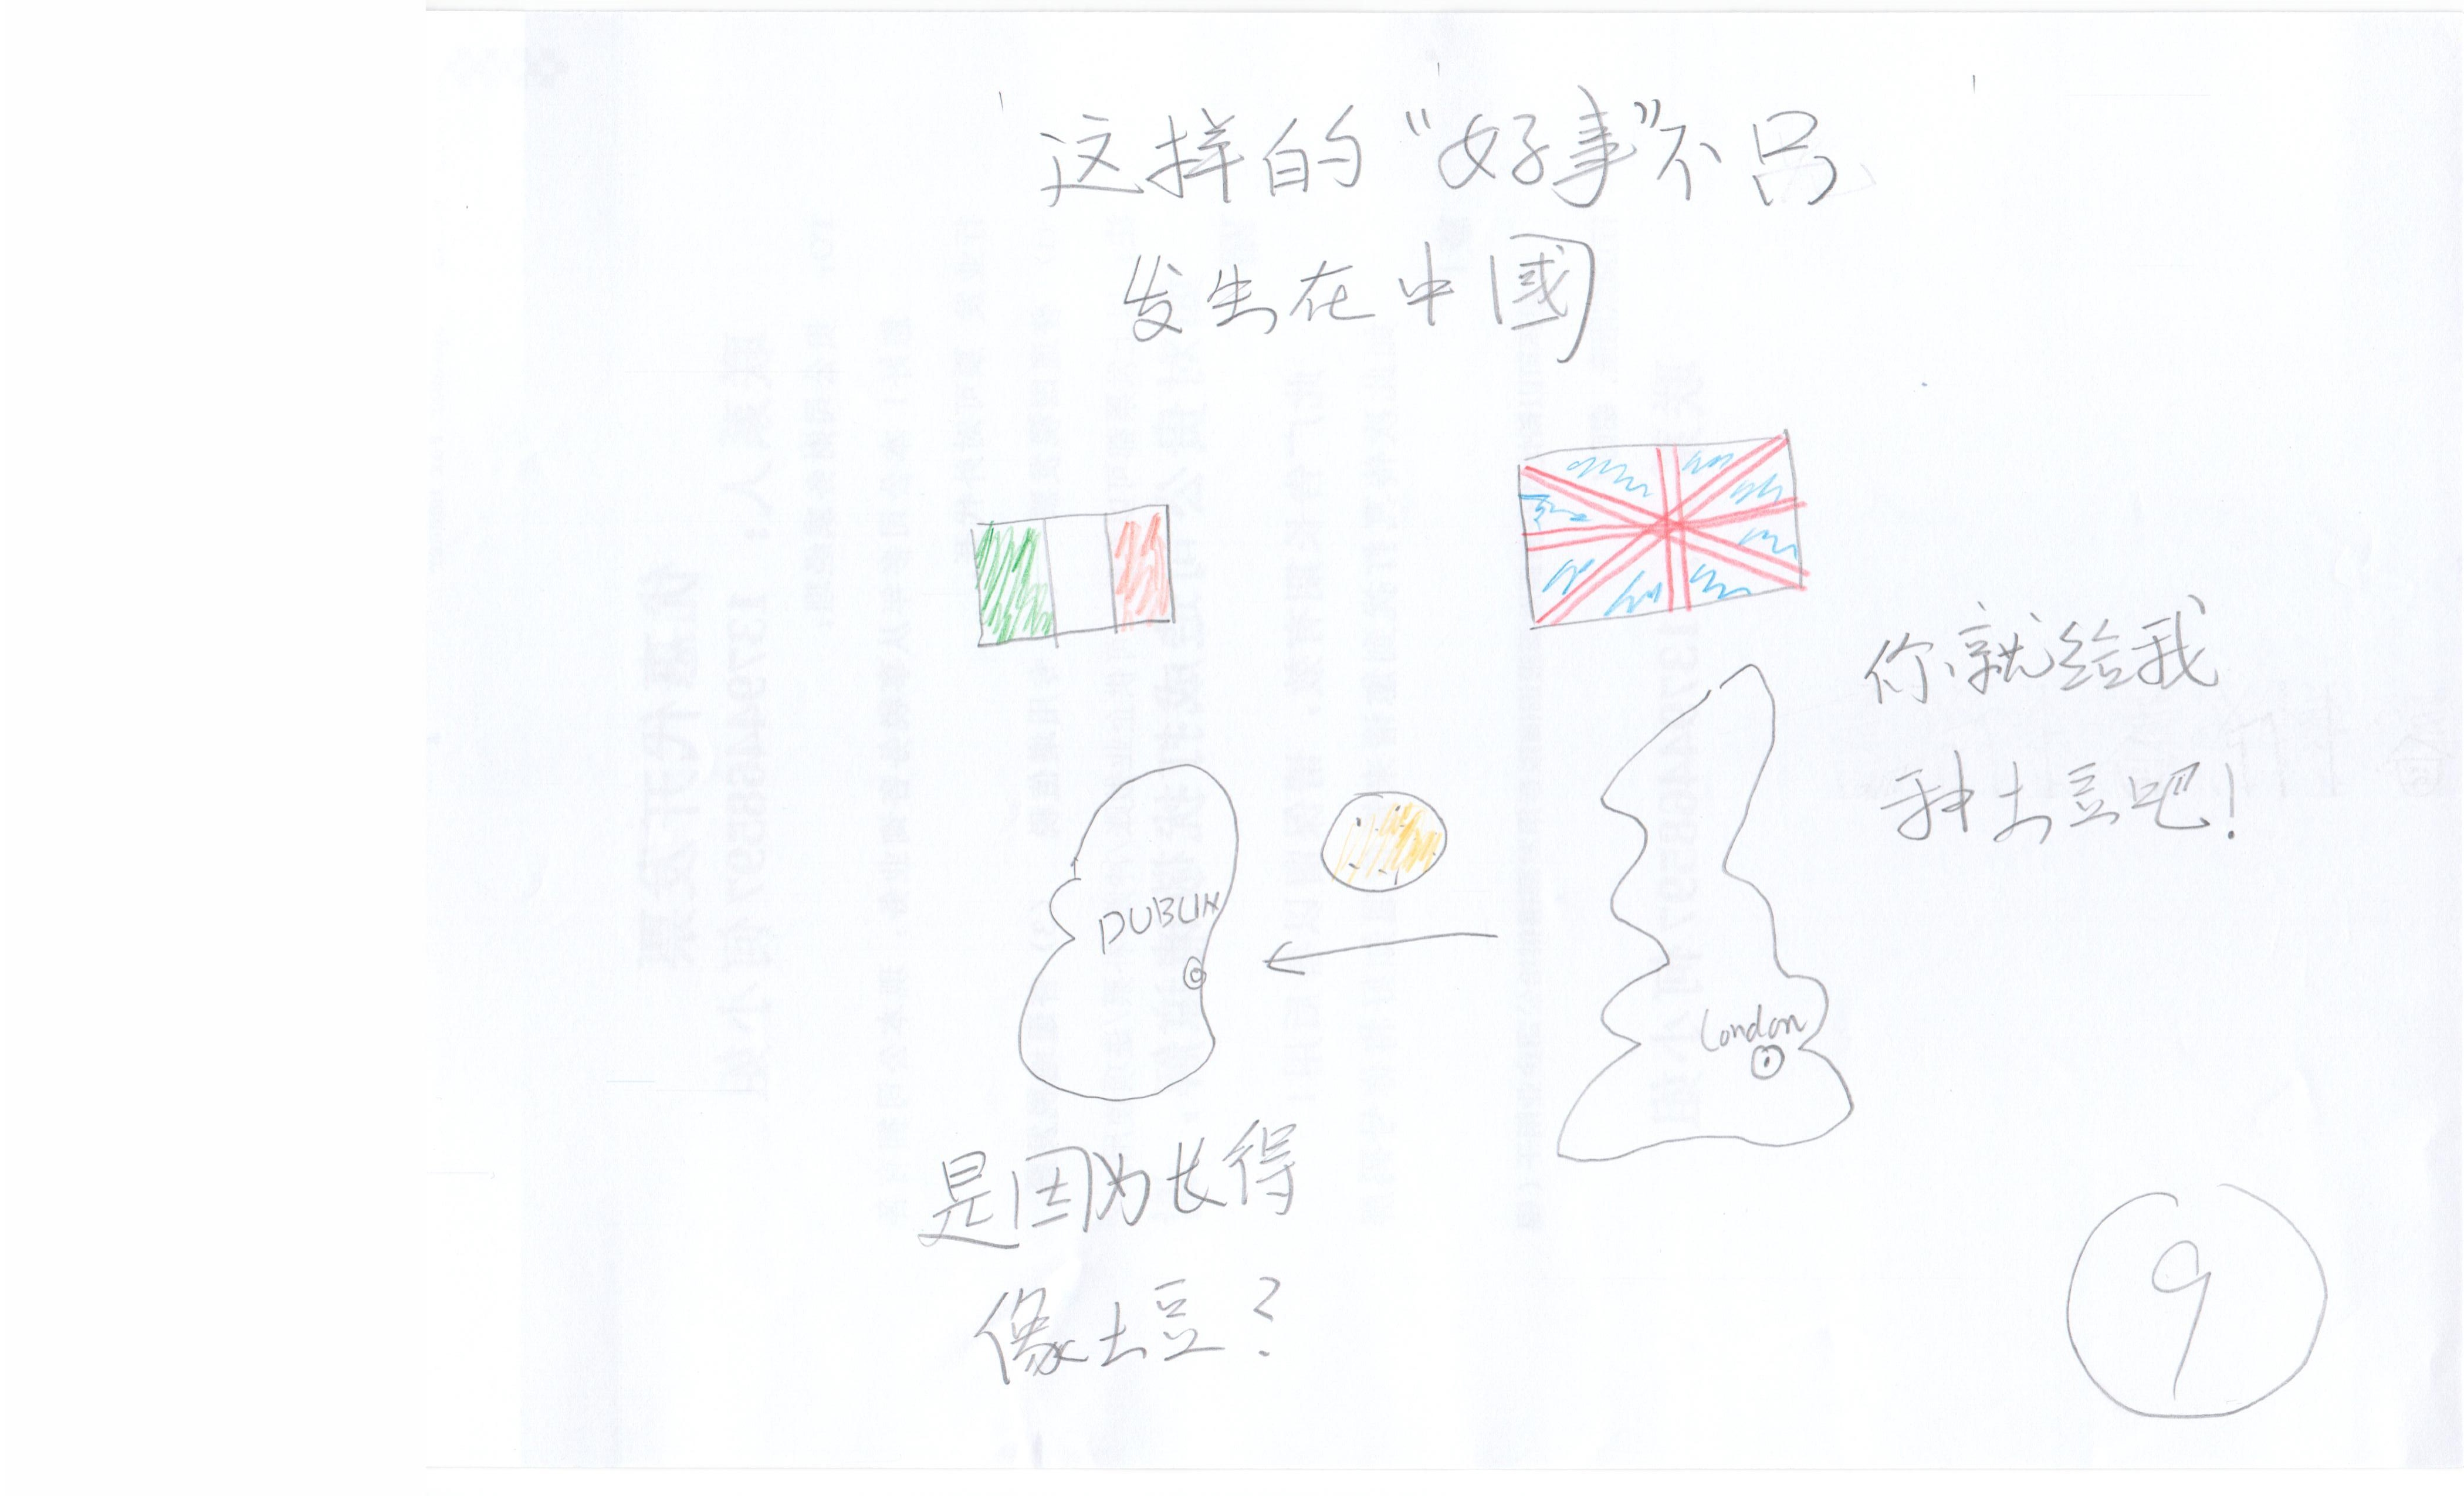 这样的“好事”不只
发生在中國
你就给我
种土豆吧！
DUBLIN
London
是因为长得
像土豆？
9